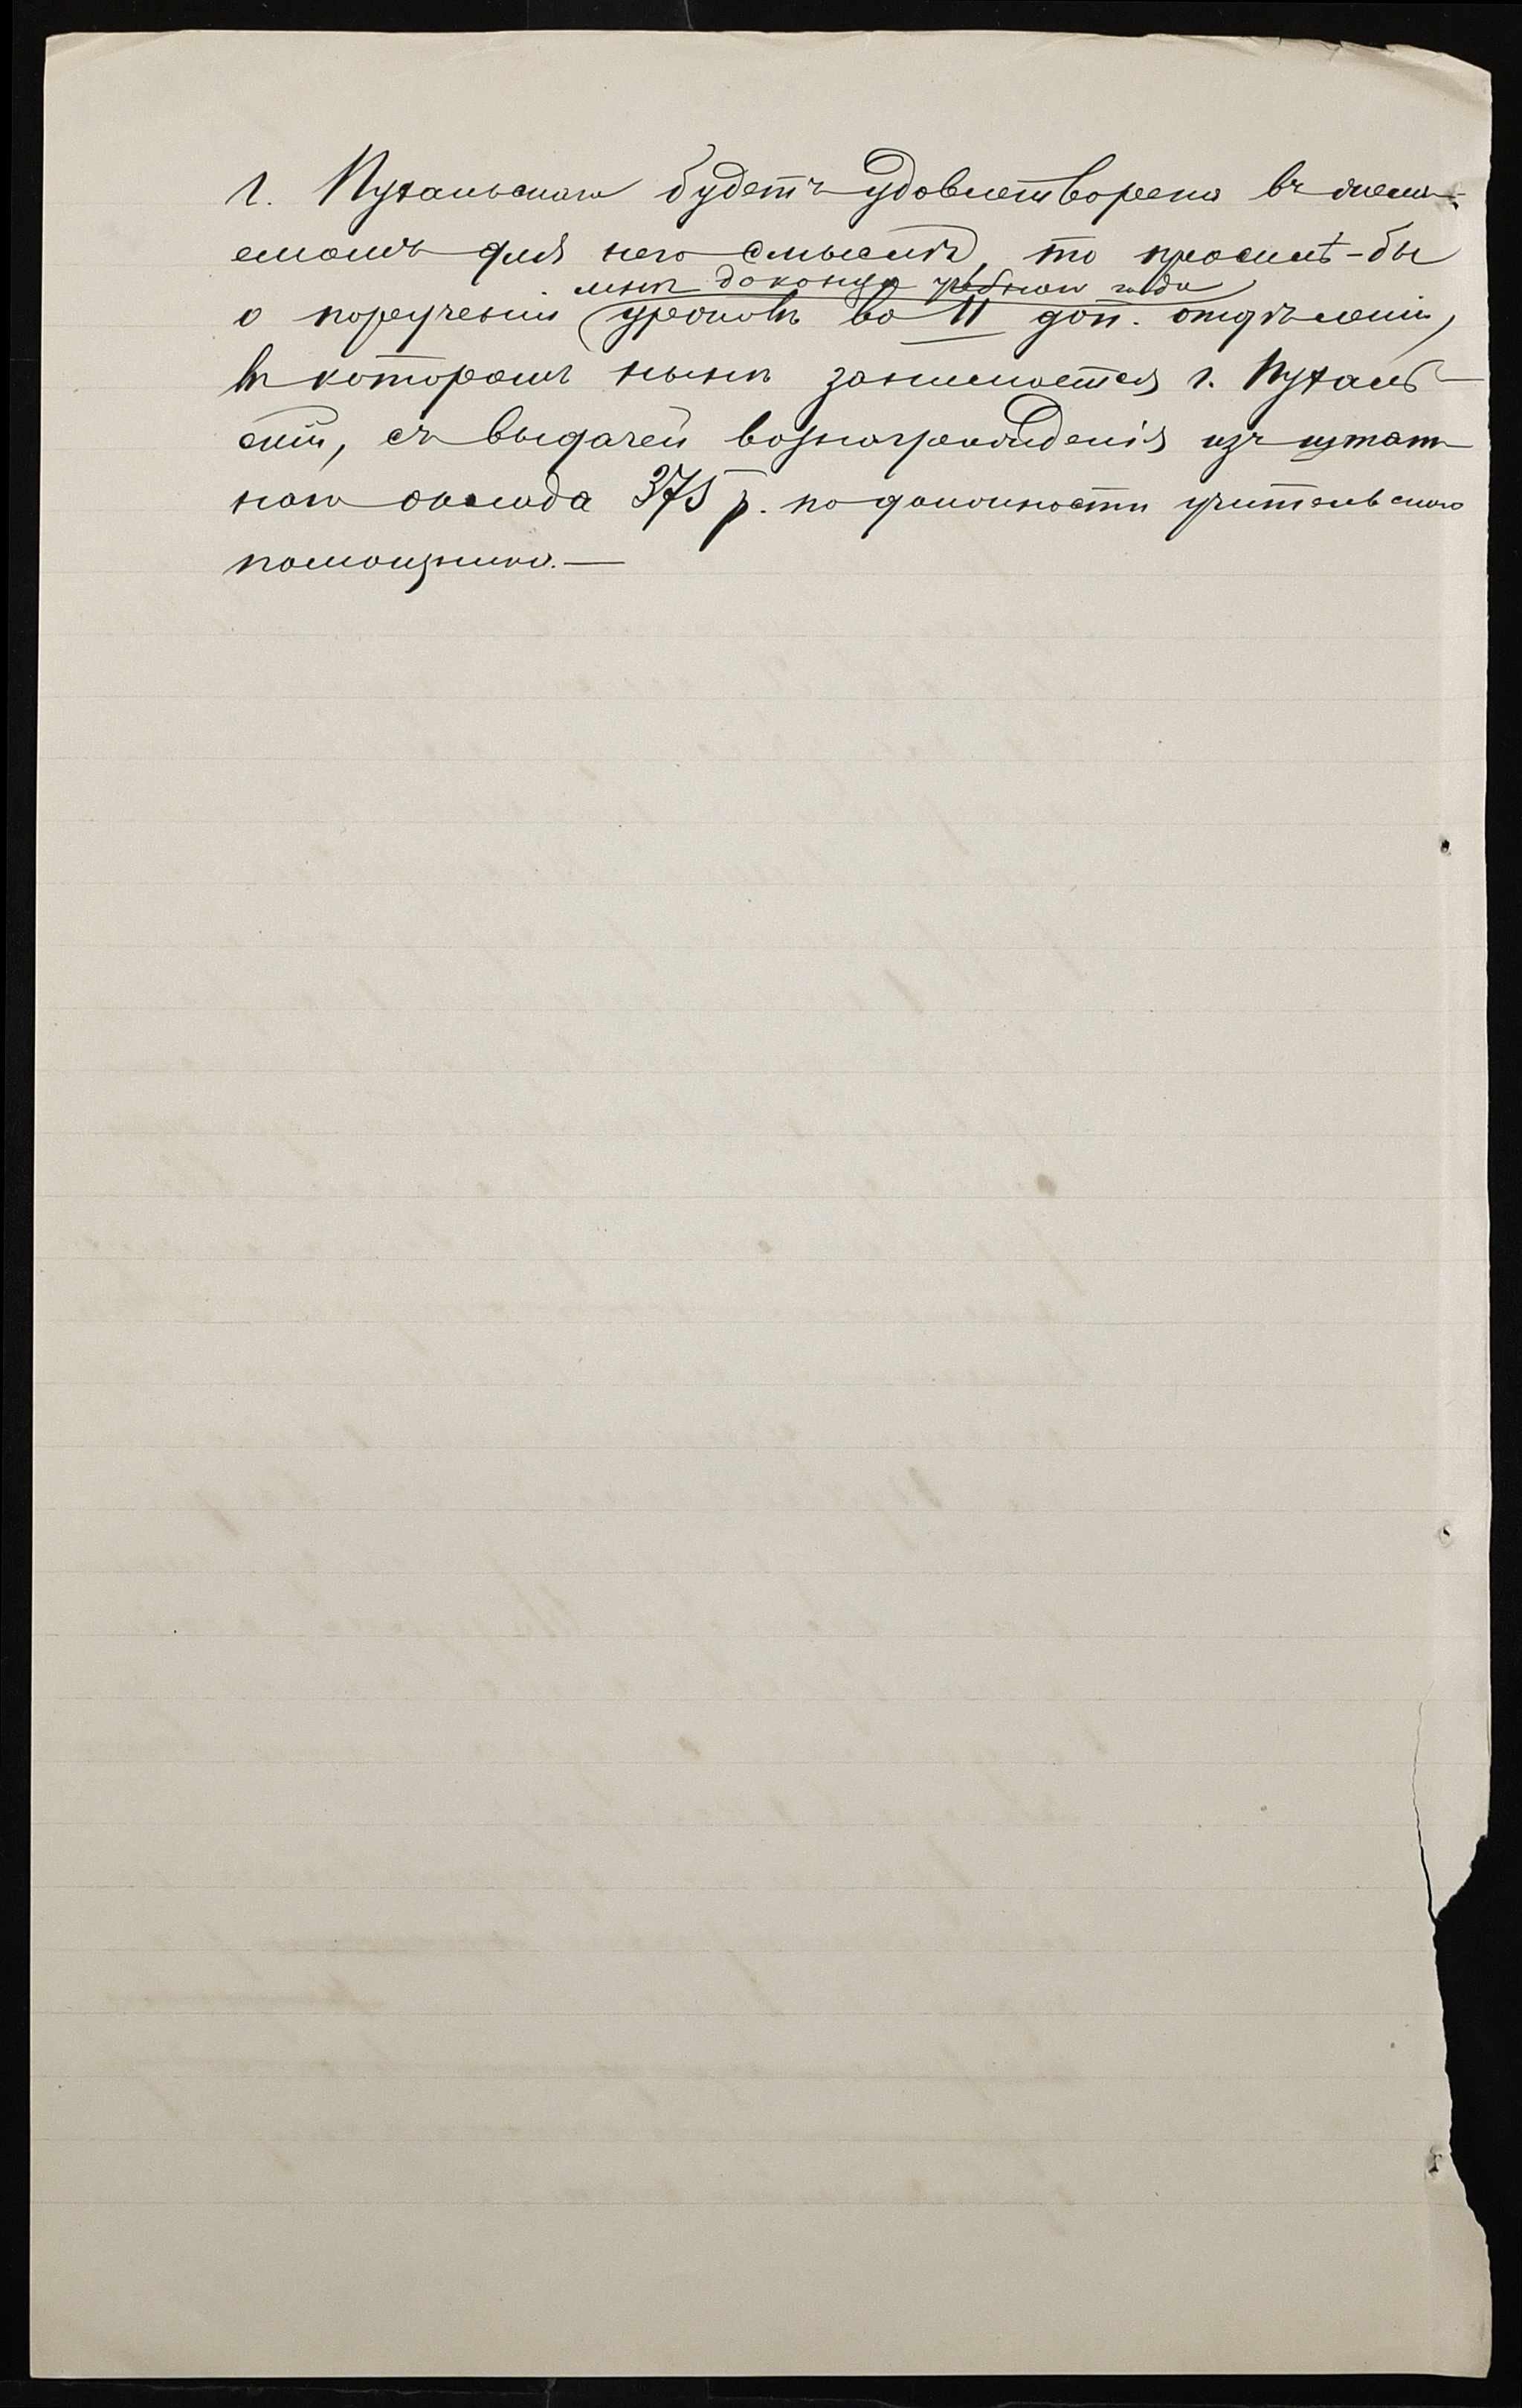 г. Пухальскаго будетъ удовлетворена въ жела-
емомъ для него смыслѣ, то просилъ-бы
мнѣ до конца учебнаго года
о порученіи уроковъ во II доп. отдѣленіи,
въ которомъ нынѣ занимается г. Пухаль-
скій, съ выдачей вознагражденія изъ штат-
наго оклада 375 р. по должности учительскаго
помощника.—